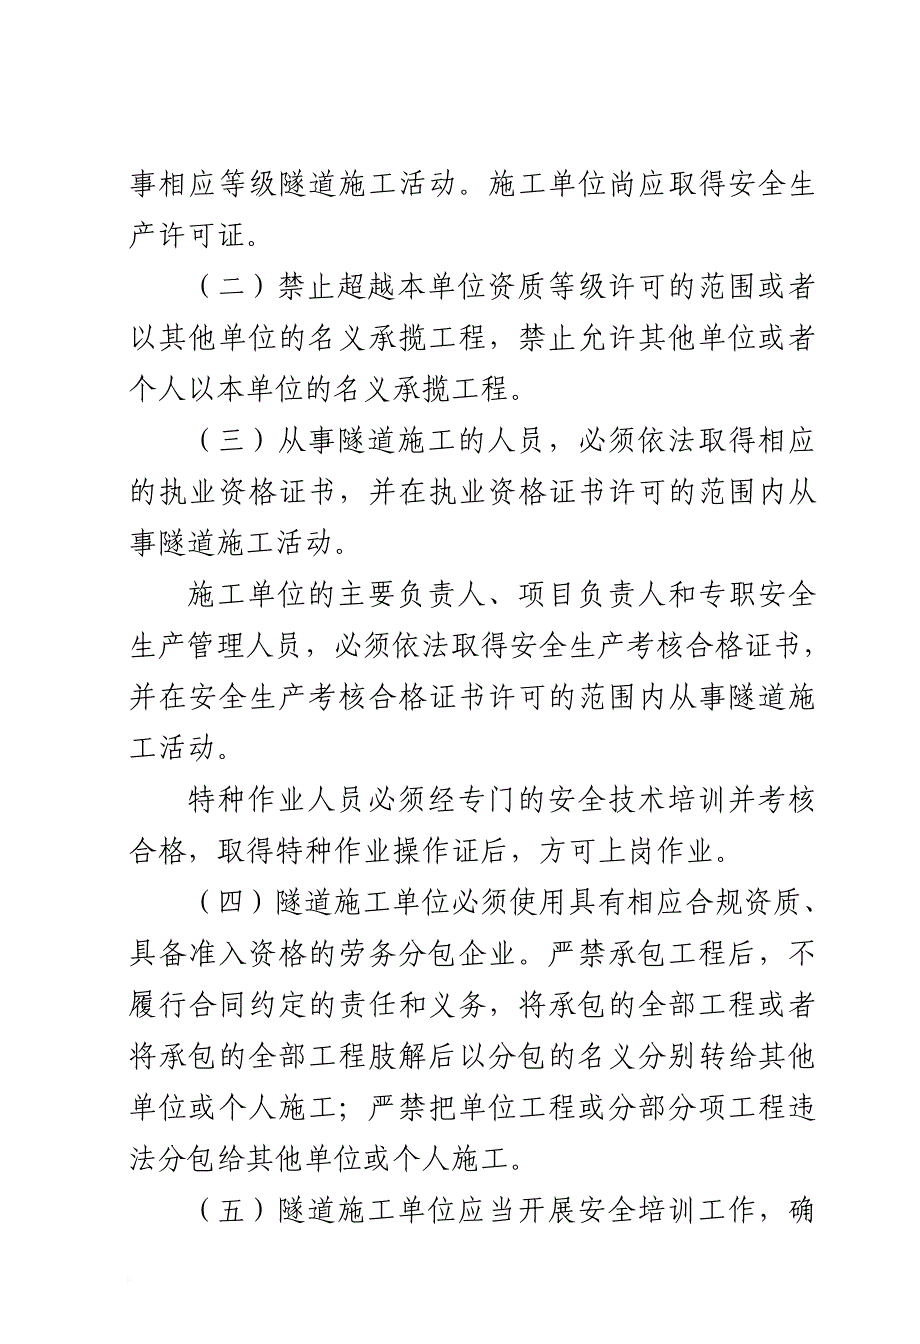 事相应等级隧道施工活动。施工单位尚应取得安全生
产许可证。
（二）禁止超越本单位资质等级许可的范围或者
以其他单位的名义承揽工程，禁止允许其他单位或者
个人以本单位的名义承揽工程。
（三）从事隧道施工的人员，必须依法取得相应
的执业资格证书，并在执业资格证书许可的范围内从
事隧道施工活动。
施工单位的主要负责人、项目负责人和专职安全
生产管理人员，必须依法取得安全生产考核合格证书，
并在安全生产考核合格证书许可的范围内从事隧道施
工活动。
特种作业人员必须经专门的安全技术培训并考核
合格，取得特种作业操作证后，方可上岗作业。
（四）隧道施工单位必须使用具有相应合规资质、
具备准入资格的劳务分包企业。严禁承包工程后，不
履行合同约定的责任和义务，将承包的全部工程或者
将承包的全部工程肢解后以分包的名义分别转给其他
单位或个人施工；严禁把单位工程或分部分项工程违
法分包给其他单位或个人施工。
（五）隧道施工单位应当开展安全培训工作，确